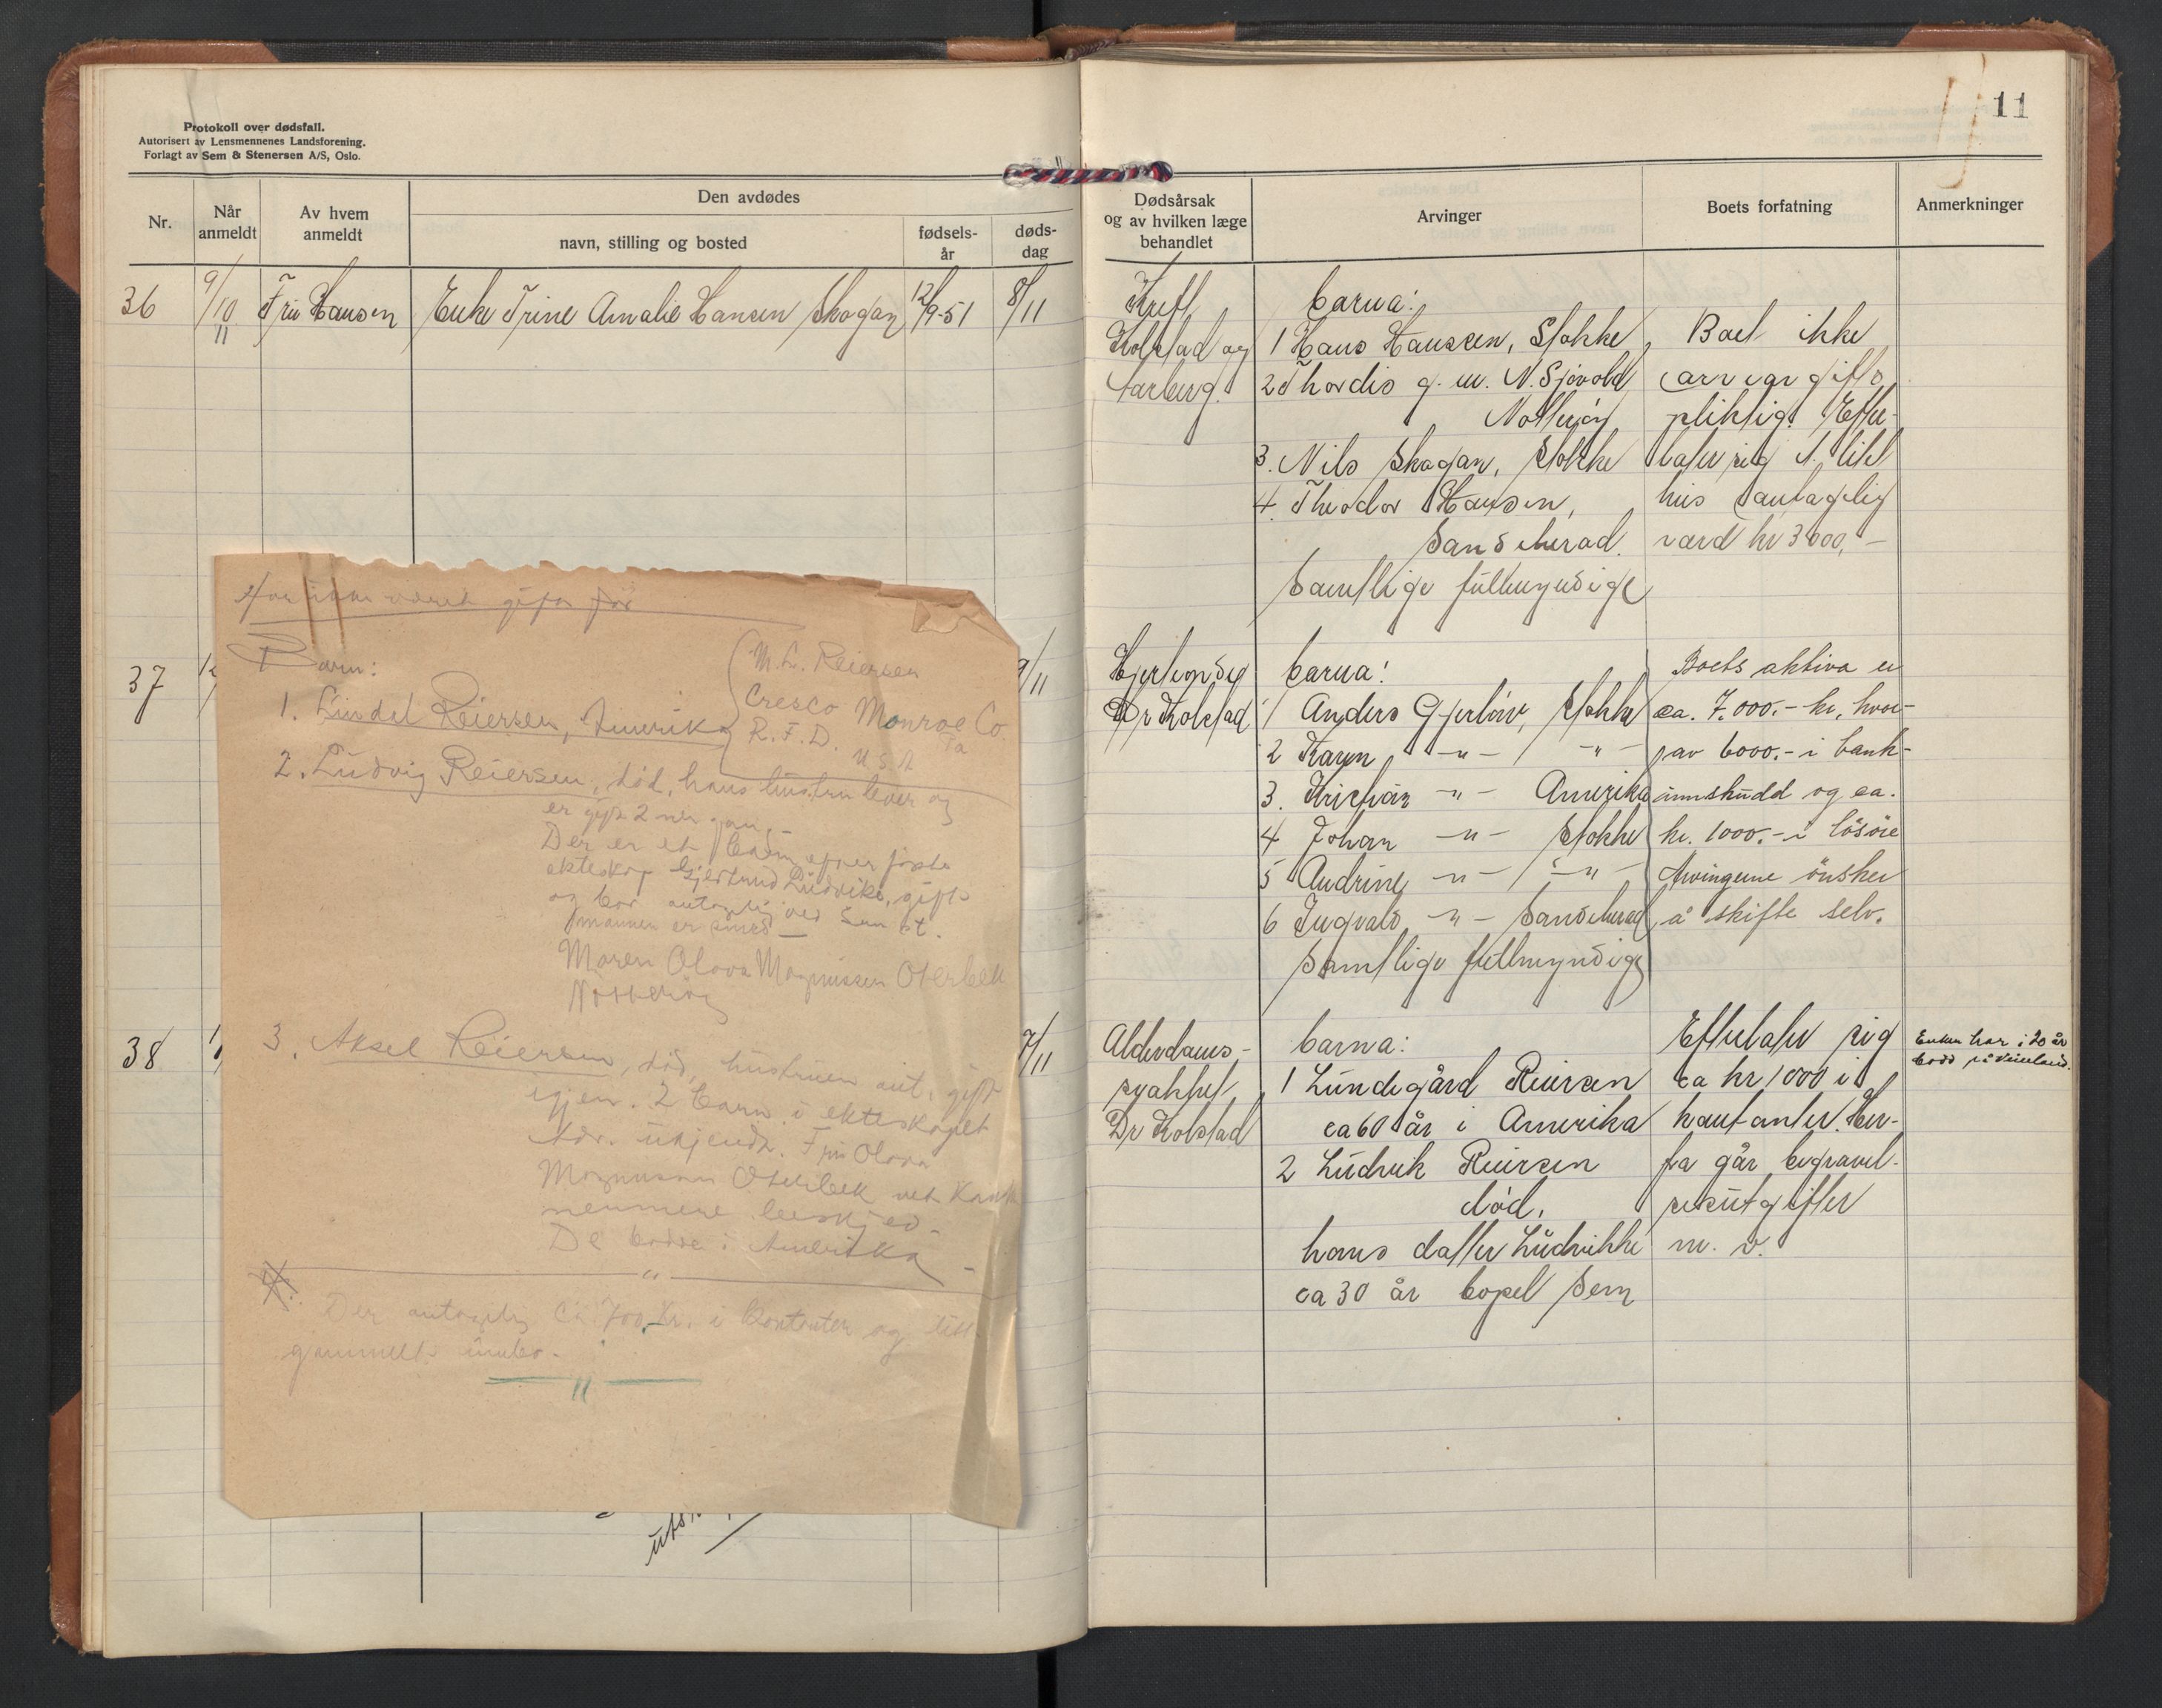 Protokoll over dødsfall.
Autorisert av Lensmennenes Landsforening.
Forlagt av Sem & Stenersen A/S, Oslo.
Nr.
Når anmeldt
Av hvem anmeldt
Den avdødes
navn, stilling og bosted
fødsels-
år
døds-
dag
36
9/10
11
Fru Hansen
Enke Trine Amalie Hansen Skogan
12/9-51
8/11
37
9/11
38
7/11
Har ikke været gift før
Barn:
1. Reiersen, Amerika
M. L. Reiersen
Cresco Monroe Co.
R. F. D.
Pa
U S A
2. Ludvig Reiersen, død, hans hustru lever og
er gift 2nen gang
Der er et barn efter første
ekteskap Ludvika, gift
og bor antagelig ved Sem st.
mannen er smed
Maren Olava Magnussen Oterbek
Nøtterøy
3. Aksel Reiersen, død, hustruen gift
igjen. 2 barn i ekteskapet
Adr. ukjendt. Fru Olava
Magnussen Oterbek vet
nermere beskjed -
De bodde i Amerika -
"
Der antagelig ca 700 kr. i kontanter og litt
gammelt innbo.
"
11
Dødsårsak
og av hvilken læge
behandlet
Arvinger
Boets forfatning
Anmerkninger
Kreft,
Kolstad og
barna:
1 Hans Hansen, Stokke,
2 Thordis g. m. N. Sjøvold
Nøtterøy
3. Nils Skogan, Stokke
4. Theodor Hansen,
Sandeherad.
Samtlige fullmyndige
Boet ikke
arveavgifts
pliktig. Efter-
later sig 1 litet
hus antagelig
værd kr 3000,-
Hjerteonde
Dr Kolstad
barna:
1 Anders Gjerløw, Stokke
2 Karen -"- -"-
3. Kristian -"- Amerika
4 Johan -"- Stokke
5 Andrine -"- -"-
6 Ingvald -"- Sandeherad
Samtlige fullmyndige
Boets aktiva er
ca. 7.000.- kr, hvor-
av 6000.- i bank-
innskudd og ca.
kr. 1000.- i løsøre
Arvingerne ønsker
å skifte selv.
Alderdoms-
svakhet,
Dr Kolstad
barna:
1 Lundegård Reiersen
ca 60 år i Amerika
2 Ludvik Reiersen
død,
hans datter Ludvikke
ca 30 år bopel Sem
Efterlater sig
ca kr 1000 i
kontanter. Her-
fra går begravel-
sesutgifter
m. v.
Enken har i 20 år
bodd på